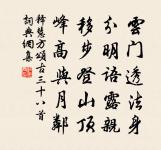 雲門透法身
分明語露親
移步登山頂
峰高與月鄰
釋慧方頌古三十八首
詞典網集